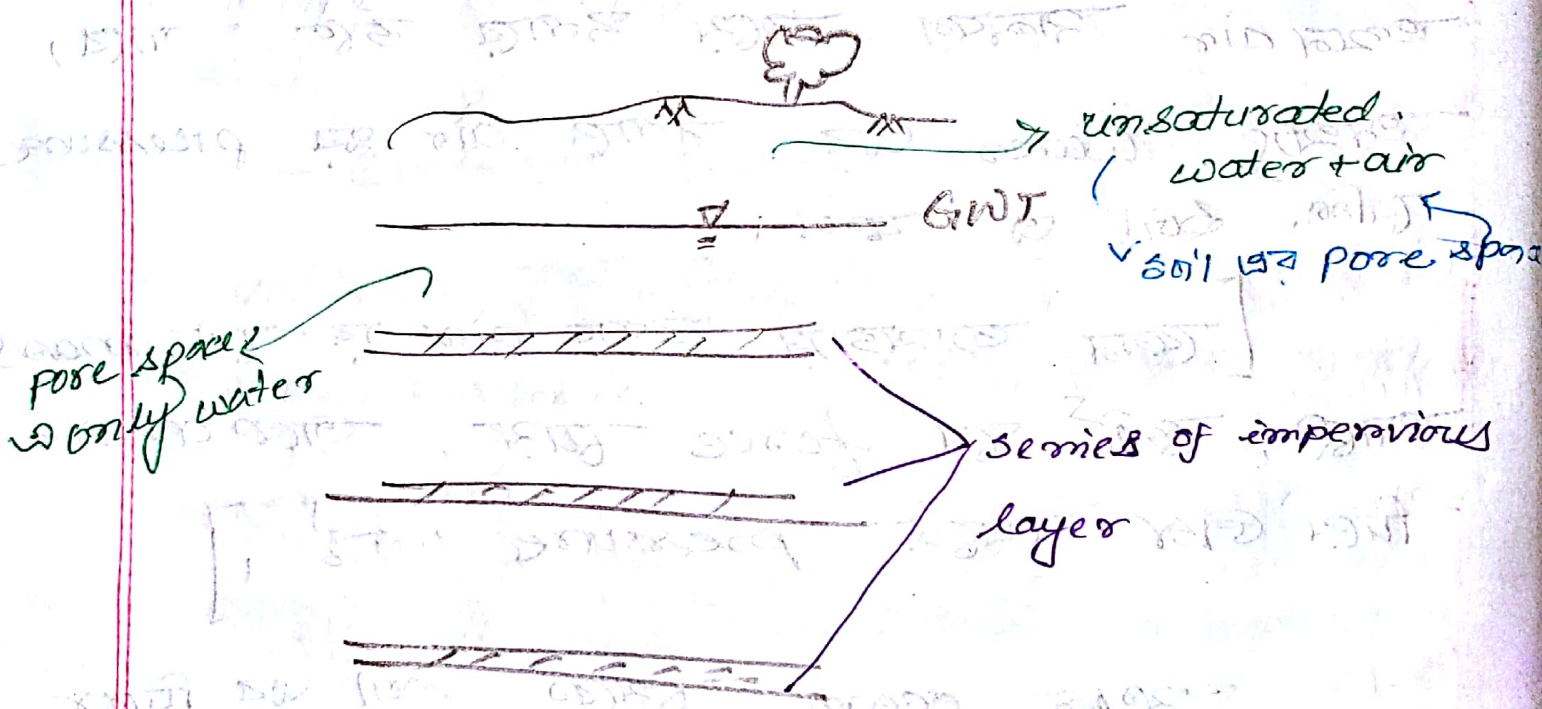 unsaturated.
water + air
GWT
এর pore
pore space
এ only water
series of impervious
layer